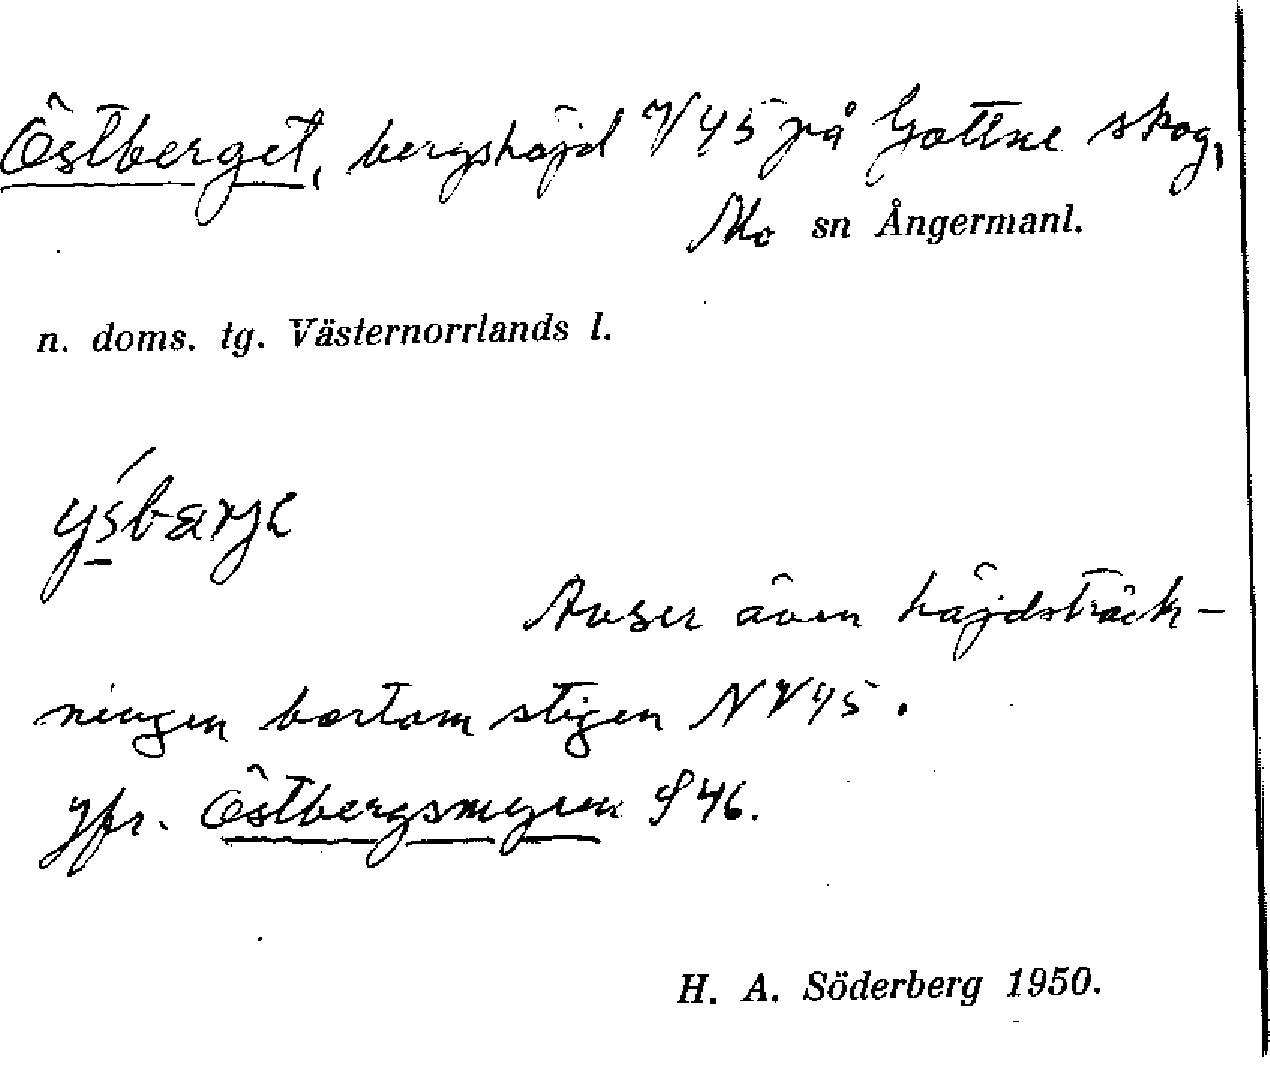 Östberget, bergshöjd V 45 på Gottne skog,
Mo sn Ångermanl.
n. doms. tg. Västernorrlands l.
ýsbærjɛ
Avser även höjdsträck-
ningen bortom stigen N V 45.
Jfr. Östbergsmyren S 46.
H. A. Söderberg 1950.